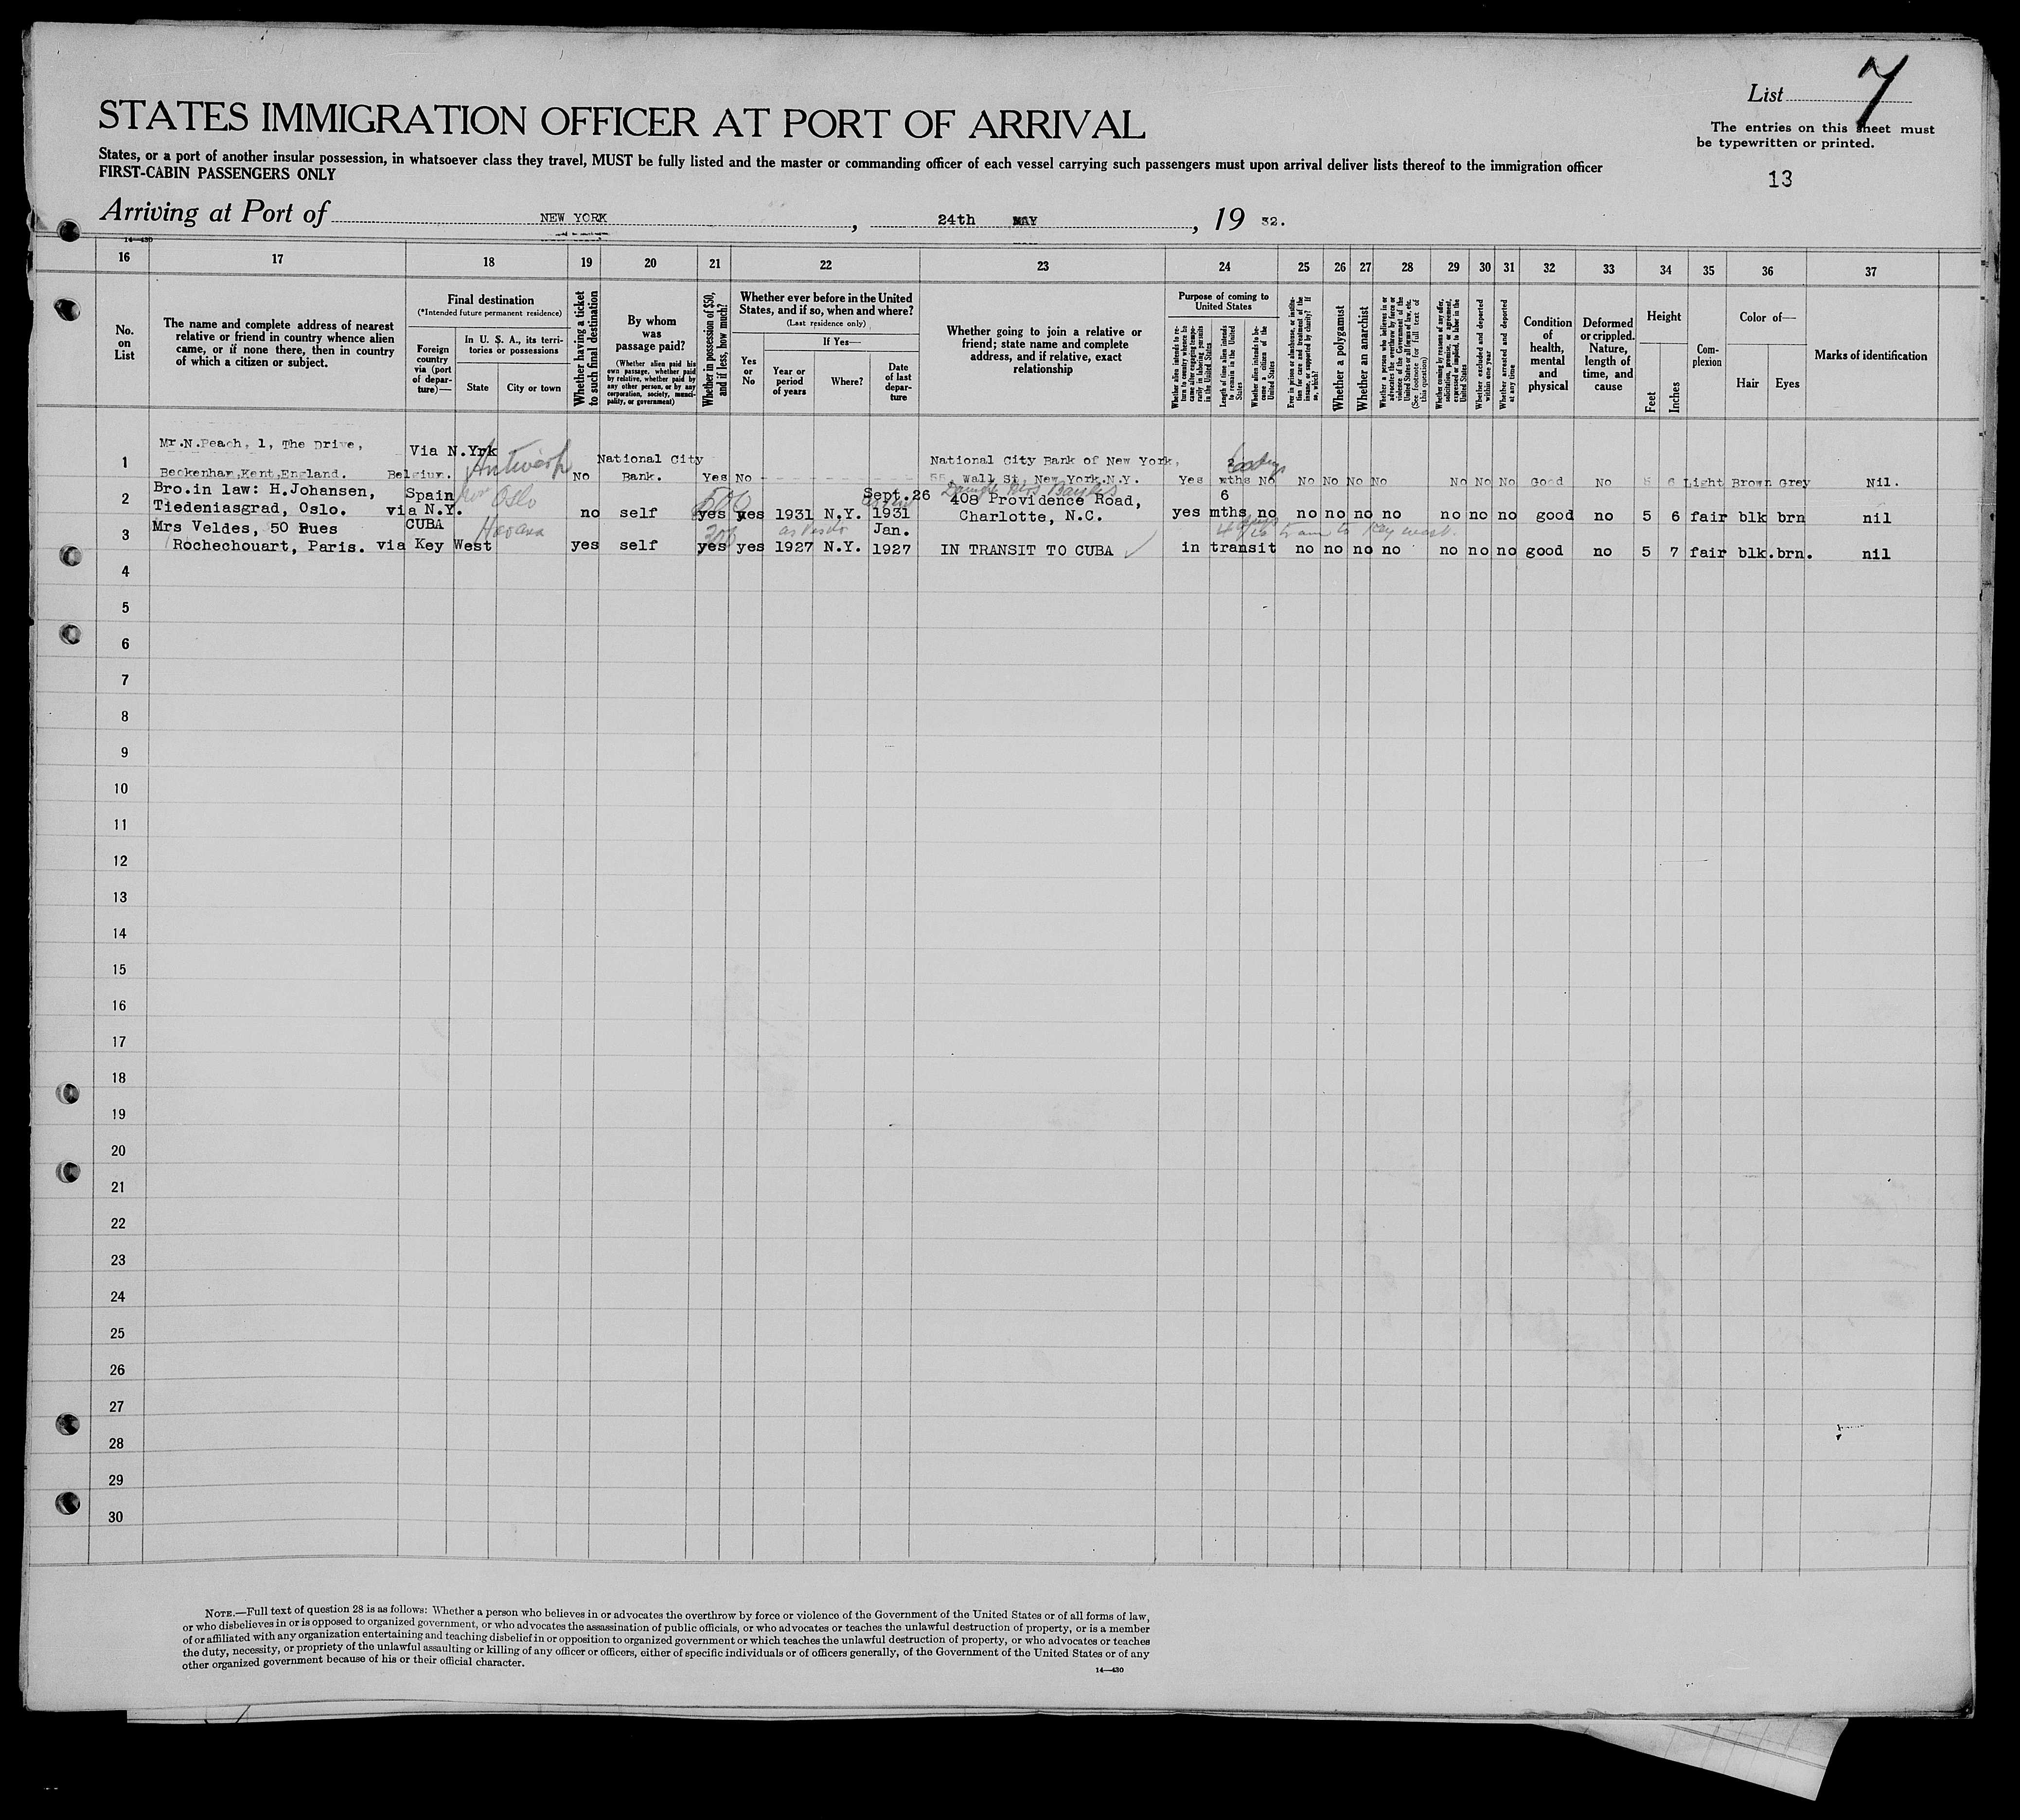 List 7
STATES IMMIGRATION OFFICER AT PORT OF ARRIVAL
The entries on this sheet must
be typewritten or printed.
States, or a port of another insular possession, in whatsoever class they travel, MUST be fully listed and the master or commanding officer of each vessel carrying such passengers must upon arrival deliver lists thereof to the immigration officer
FIRST-CABIN PASSENGERS ONLY
13
Arriving at Port of NEW YORK, 24th MAY, 19 32.
14—430
16 17 18 19 20 21 22 23 24 25 26 27 28 29 30 31 32 33 34 35 36 37
No. on List
The name and complete address of nearest relative or friend in country whence alien came, or if none there, then in country of which a citizen or subject.
Final destination
(*Intended future permanent residence)
Foreign country via (port of departure)—
In U. S. A., its territories or possessions
State City or town
Whether having a ticket to such final destination
By whom was passage paid?
(Whether alien paid his own passage, whether paid by relative, whether paid by any other person, or by any corporation, society, municipality, or government)
Whether in possession of $50, and if less, how much?
Whether ever before in the United States, and if so, when and where?
(Last residence only)
If Yes—
Yes or No
Year or period of years
Where?
Date of last departure
Whether going to join a relative or friend; state name and complete address, and if relative, exact relationship
Purpose of coming to United States
Whether alien intends to return to country whence he came after engaging temporarily in laboring pursuits in the United States
Length of time alien intends to remain in the United States
Whether alien intends to become a citizen of the United States
Ever in prison or almshouse, or institution for care and treatment of the insane, or supported by charity? If so, which?
Whether a polygamist
Whether an anarchist
Whether a person who believes in or advocates the overthrow by force or violence of the Government of the United States or all forms of law, etc. (See footnote for full text of this question)
Whether coming by reasons of any offer, solicitation, promise, or agreement, expressed or implied, to labor in the United States
Whether excluded and deported within one year
Whether arrested and deported at any time
Condition of health, mental and physical
Deformed or crippled. Nature, length of time, and cause
Height
Feet Inches
Complexion
Color of—
Hair Eyes
Marks of identification
Mr.N.Peach, 1, The Drive, Via N.Yrk Antwerp National City National City Bank of New York,
1 Beckenham,Kent,England. Belgium. No Bank. Yes No - - - - 55, Wall St, New York.N.Y. Yes mths No No No No No No No No Good No 5 6 Light Brown Grey Nil.
Bro.in law: H.Johansen, Spain Oslo 500 Sept.26 408 Providence Road, 6
2 Tiedeniasgrad, Oslo. via N.Y. no self yes yes 1931 N.Y. 1931 Charlotte, N.C. yes mths no no no no no no no no good no 5 6 fair blk brn nil
Mrs Veldes, 50 Rues CUBA Havana 300 Jan. 4 days to Key West.
3 Rochechouart, Paris. via Key West yes self yes yes 1927 N.Y. 1927 IN TRANSIT TO CUBA in transit no no no no no no no good no 5 7 fair blk. brn. nil
4
5
6
7
8
9
10
11
12
13
14
15
16
17
18
19
20
21
22
23
24
25
26
27
28
29
30
NOTE.—Full text of question 28 is as follows: Whether a person who believes in or advocates the overthrow by force or violence of the Government of the United States or of all forms of law,
or who disbelieves in or is opposed to organized government, or who advocates the assassination of public officials, or who advocates or teaches the unlawful destruction of property, or is a member
of or affiliated with any organization entertaining and teaching disbelief in or opposition to organized government or which teaches the unlawful destruction of property, or who advocates or teaches
the duty, necessity, or propriety of the unlawful assaulting or killing of any officer or officers, either of specific individuals or of officers generally, of the Government of the United States or of any
other organized government because of his or their official character.
14—430